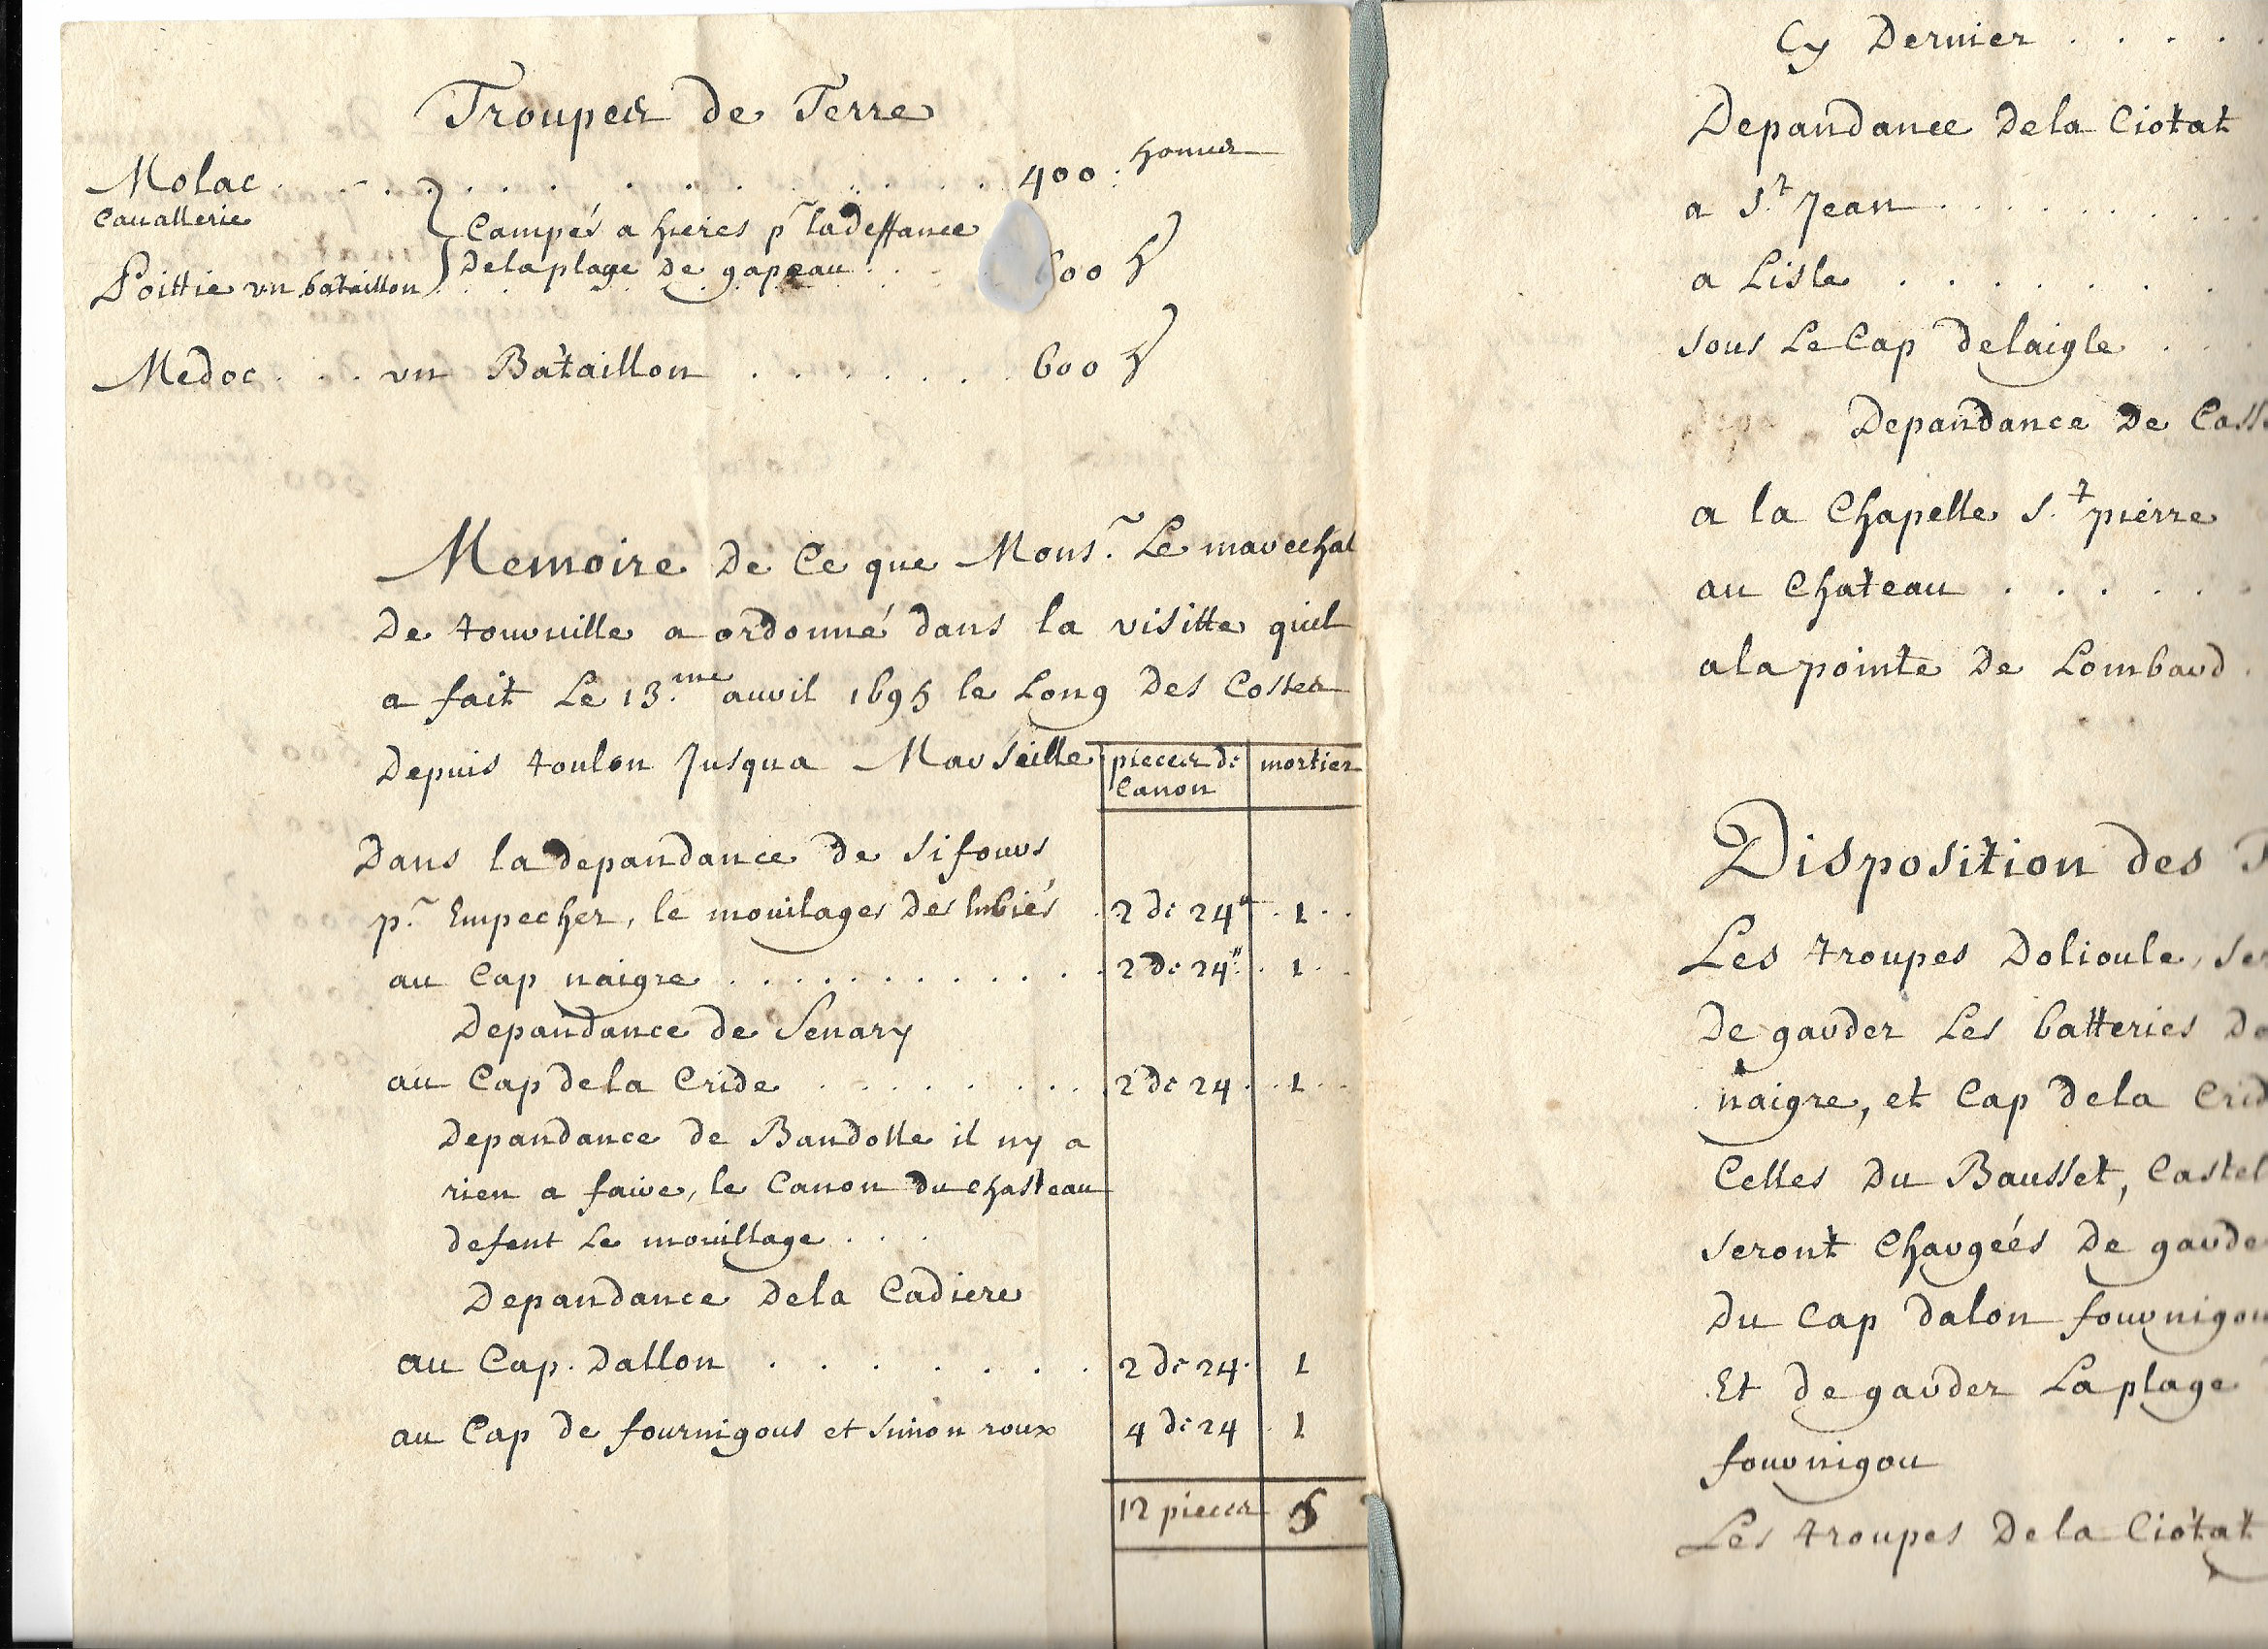 Troupes de Terre
Molac . . . . . . . . . . . . 400 : homes
Cauallerie
Campés a hieres pr ladeffance
Poittie vn bataillon Delaplage De gapeau . . 600 h
Medoc . . . vn Bataillon . . . . . . 600 h
Memoire De Ce que Monsr. Le marechal
De tourville a ordonné dans la visitte quil
a fait Le 13.me auril 1695 le Long Des Costes
Depuis toulon Jusqua Marseille pieces de Canon mortier
Dans la depandance de sifours
pr. Empecher, le mouilages Des . 2 de 24 . 1 . .
au Cap naigre . . . . . . . . . . 2 de 24 . 1 . .
Depandance de Senary
au Cap dela Cride . . . . . . . 2 de 24 . . 1 . .
Depandance de Bandolle il ny a
rien a faire, le Canon du chasteau
defent Le mouillage . . .
Depandance Dela Cadiere
au Cap. Dallon . . . . . . . 2 de 24 . 1
au Cap De fournigous et simon roux 4 de 24 . 1
12 pieces 5
Cy Dernier . . . . .
Depandance Dela Ciotat
a St. Jean . . . . . . . .
a Lisle . . . . . . . .
sous Le Cap delaigle . . .
Depandance De Casse
a la Chapelle S.t pierre
au Chateau . . . . . .
ala pointe De Lombard .
Disposition des T
Les troupes Dolioule, ser
De garder Les batteries De
naigre, et Cap dela Crid
Celles Du Bausset, Castel
seront Chargéés De garder
Du Cap dalon fournigou
Et de garder La plage
fournigou
Les troupes Dela Ciotat